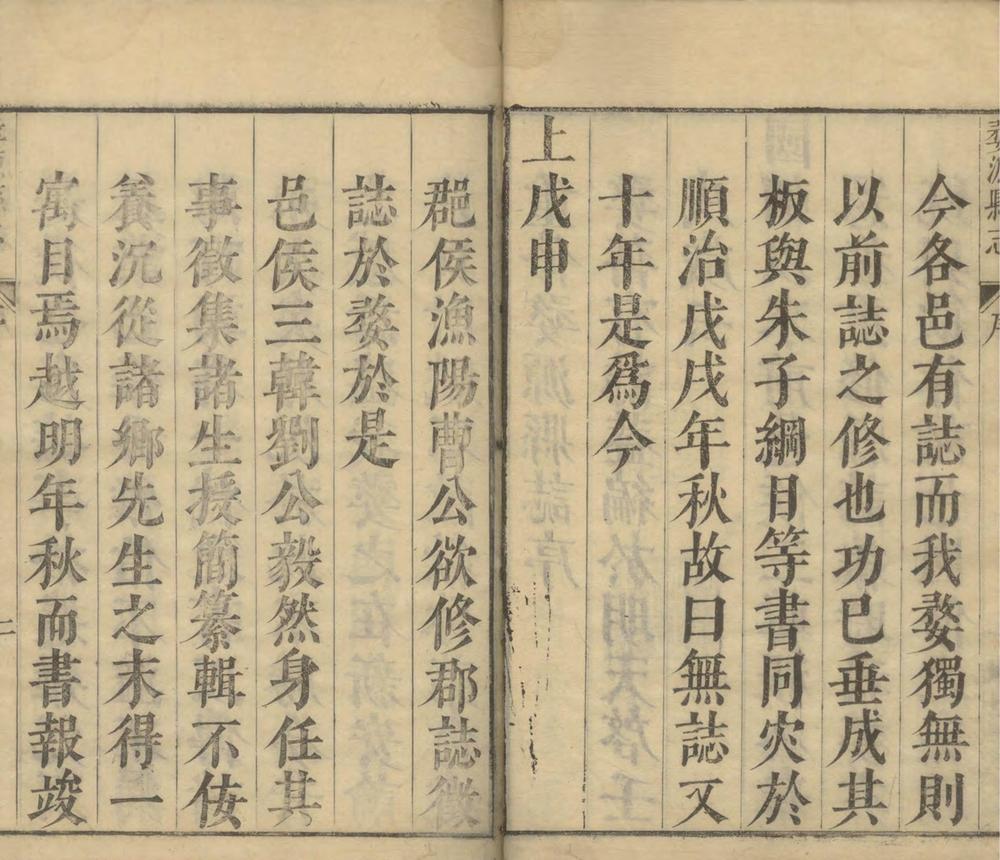 婺源縣志
今各邑有誌而我婺獨無則
以前誌之修也功已垂成其
板與朱子綱目等書同灾於
順治戊戌年秋故曰無誌又
十年是爲今
上戊申
郡侯漁陽曹公欲修郡誌徵
誌於婺於是
邑侯三韓劉公毅然身任其
事徵集諸生授簡纂輯不佞
養沉從諸鄉先生之末得一
寓目焉越明年秋而書報竣